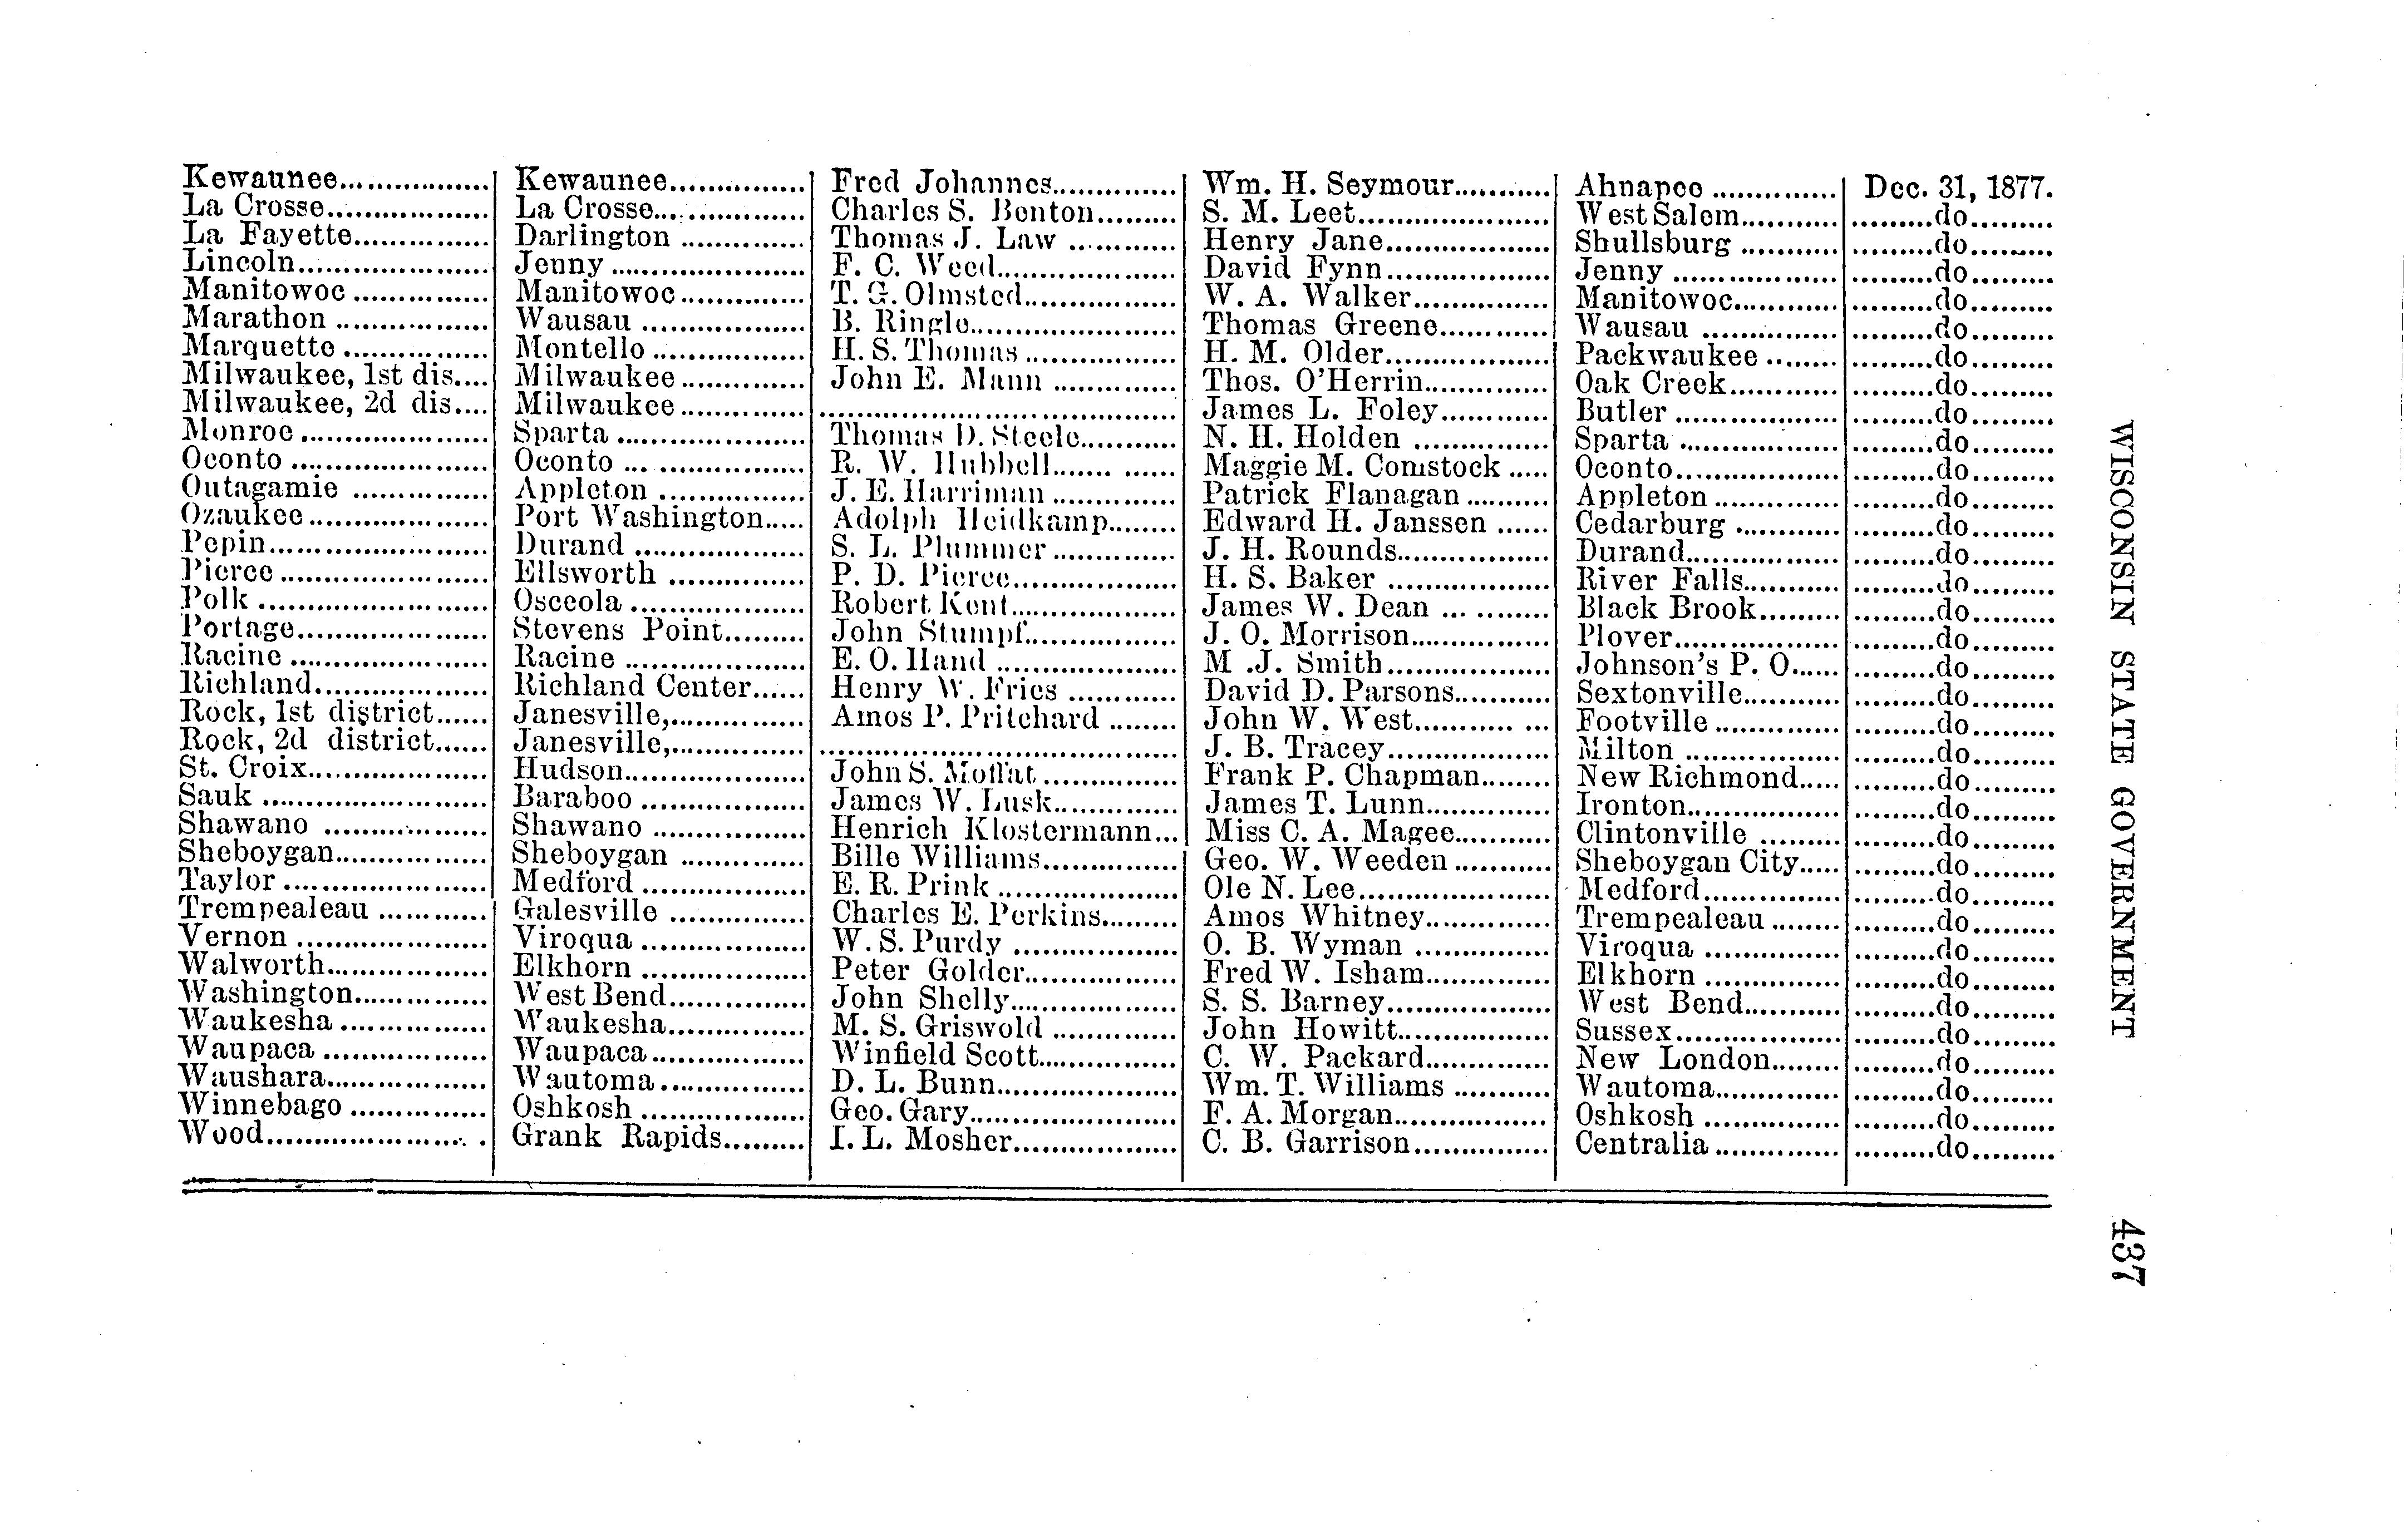 Kewaunee.................. Kewaunee............... Fred Johannes.............. Wm. H. Seymour........... Ahnapee .............. Dec. 31, 1877.
La Crosse.................. La Crosse................. Charles S. Benton......... S. M. Leet...................... West Salem........... .........do.........
La Fayette................ Darlington .............. Thomas J. Law ............ Henry Jane................... Shullsburg ........... .........do.........
Lincoln...................... Jenny ...................... F. C. Weed.................... David Fynn................... Jenny ................... .........do.........
Manitowoc ............... Manitowoc.............. T. G. Olmsted................. W. A. Walker............... Manitowoc............ .........do.........
Marathon .................. Wausau ................... B. Ringle....................... Thomas Greene............ Wausau ............... .........do.........
Marquette ................ Montello ................. H. S. Thomas ................. H. M. Older................... Packwaukee ........ .........do.........
Milwaukee, 1st dis.... Milwaukee.............. John E. Mann .............. Thos. O'Herrin.............. Oak Creek............ .........do.........
Milwaukee, 2d dis.... Milwaukee.............. ........................................ James L. Foley............ Butler .................. .........do.........
Monroe ..................... Sparta ..................... Thomas D. Steele........... N. H. Holden ............... Sparta .................. .........do.........
Oconto ...................... Oconto ... ................. R. W. Hubbell....... ...... Maggie M. Comstock ..... Oconto.................. .........do.........
Outagamie ............... Appleton ................. J. E. Harriman .............. Patrick Flanagan ......... Appleton .............. .........do.........
Ozaukee .................... Port Washington..... Adolph Heidkamp........ Edward H. Janssen ...... Cedarburg ............ .........do.........
Pepin......................... Durand ................... S. L. Plummer .............. J. H. Rounds................. Durand................. .........do.........
Pierce ........................ Ellsworth ................ P. D. Pierce................... H. S. Baker .................. River Falls........... .........do.........
Polk .......................... Osceola .................... Robert Kent................... James W. Dean ... ........ Black Brook......... .........do.........
Portage...................... Stevens Point......... John Stumpf................. J. O. Morrison............... Plover................... .........do.........
Racine ...................... Racine ..................... E. O. Hand .................... M .J. Smith.................. Johnson's P. O...... .........do.........
Richland.................... Richland Center...... Henry W. Fries ............ David D. Parsons........... Sextonville........... .........do.........
Rock, 1st district...... Janesville,............... Amos P. Pritchard ........ John W. West........... ... Footville .............. .........do.........
Rock, 2d district...... Janesville,............... ........................................ J. B. Tracey.................. Milton ................. .........do.........
St. Croix.................... Hudson.................... John S. Moffat............... Frank P. Chapman........ New Richmond..... .........do.........
Sauk ......................... Baraboo ................... James W. Lusk.............. James T. Lunn.............. Ironton................. .........do.........
Shawano .................. Shawano ................. Henrich Klostermann... Miss C. A. Magee........... Clintonville ......... .........do.........
Sheboygan................. Sheboygan .............. Bille Williams............... Geo. W. Weeden ........... Sheboygan City..... .........do.........
Taylor ....................... Medford .................. E. R. Prink .................... Ole N. Lee...................... Medford................ .........do.........
Trempealeau ............ Galesville ............... Charles E. Perkins......... Amos Whitney.............. Trempealeau ........ .........do.........
Vernon ..................... Viroqua ................... W. S. Purdy .................. O. B. Wyman ............... Viroqua ............... .........do.........
Walworth.................. Elkhorn ................... Peter Golder................. Fred W. Isham.............. Elkhorn ............... .........do.........
Washington............... West Bend............... John Shelly.................. S. S. Barney.................. West Bend........... .........do.........
Waukesha ................ Waukesha................ M. S. Griswold .............. John Howitt................. Sussex................... .........do.........
Waupaca .................. Waupaca ................. Winfield Scott............... C. W. Packard.............. New London........ .........do.........
Waushara.................. Wautoma ................ D. L. Bunn.................... Wm. T. Williams ........... Wautoma.............. .........do.........
Winnebago ............... Oshkosh .................. Geo. Gary....................... F. A. Morgan................. Oshkosh ............... .........do.........
Wood....................... . Grank Rapids......... I. L. Mosher................... C. B. Garrison............... Centralia .............. .........do.........
WISCONSIN STATE GOVERNMENT 437